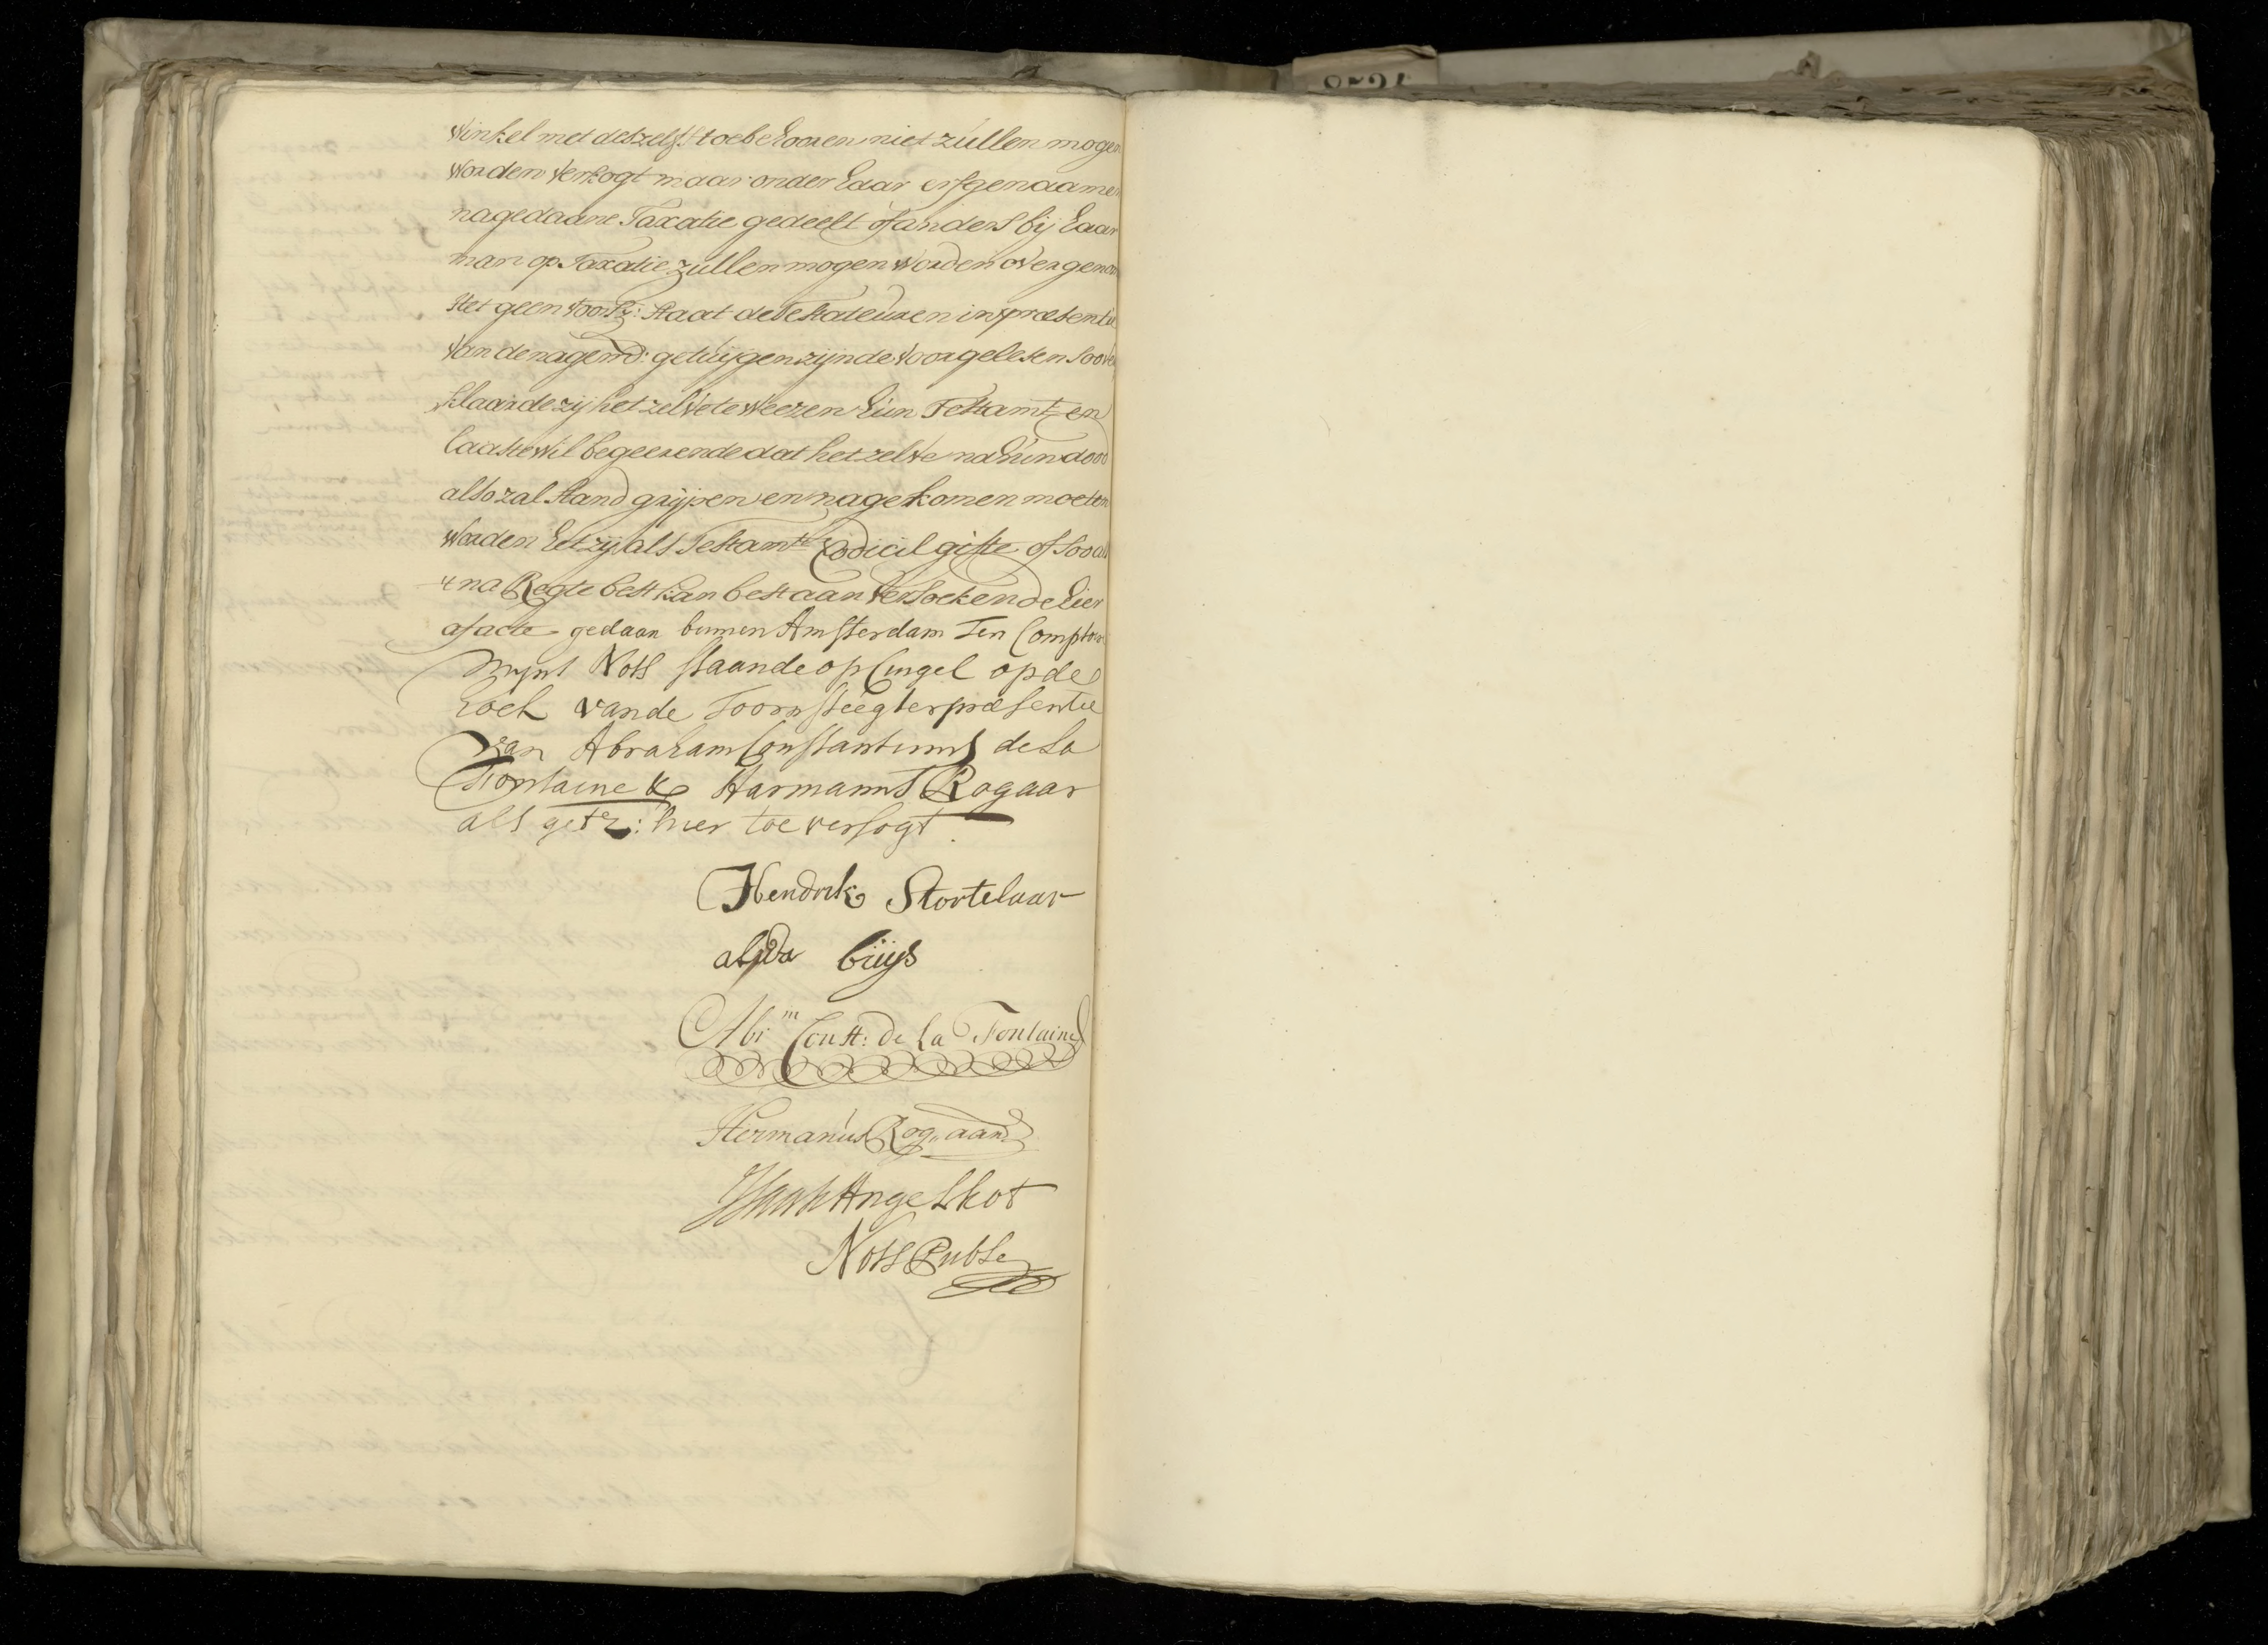 winkel met deszelfs toebehooren niet zullen mogen
worden verkogt maar onder haar erfgenaamen
nagedaane Taxatie gedeelt of anders bij haar
man op Taxatie zullen mogen worden overgenom
Het geen voorsz: staat de Testateuren in præsentie
van de nagemd: getuijgen zijnde voorgelesen soo ver
klaarde zij het zelve te weezen hun Testamt. en
laaste wil begeerende dat het zelve na hun dood
also zal stand grijpen en nagekomen moeten
worden het zij als Testamt Codicil gifte of soo als
na Regte best kan bestaan versoekende hier
af acte gedaan binnen Amsterdam Ten Comptoir
mijns Nots staande op Cingel op de
hoek vande Toornsteeg ter præsentie
van Abraham Constantinus de La
Fontaine & Harmanus Rogaar
als getz: hier toe versogt
Hendrik Stortelaar
alyda büys
Abrm Const: de La Fontaine
Hermanus Rogaar
Isaak Angelkot
Nots Publ